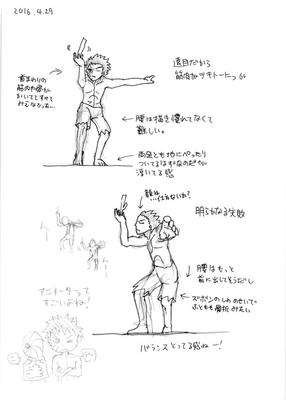 2016.4.29
遠目だから
筋肉がテキトーにっか
首まわりの
筋肉や骨が
みるなかった…
腰は描き慣れてなくて
難しい。
両足とも地にべったり
ついてるはずなのだが
浮いてる感
顔は…
明らかなる失敗
腰はもっと
前に出してそうだし
ズボンのしわのせいで
ふともも骨折みたい
アニメーターって
すごいよね！
バランスとってる感ねー！